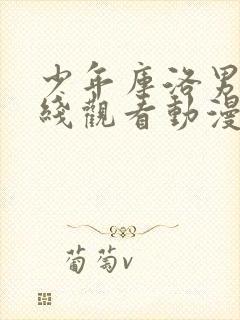 少年庫洛男
綫觀看動漫
葡萄v